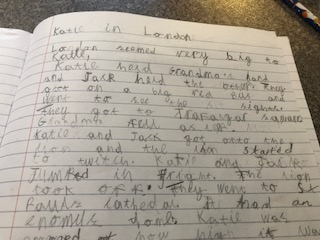 Katie in London
London seemed very big to
Katie,
Katie held Grandma's hand
and Jack held the other. They
got on a big red bus and
went to see the sights.
They got to Trafalgar square
Grandma fell asleep.
Katie and Jack got onto the
lion and the lion started
to twitch. Katie and Jack
Jumped in fright. The lion
took off. They went to St
Pauls cathedral. It had an
enomus dome. Katie was
how high it was